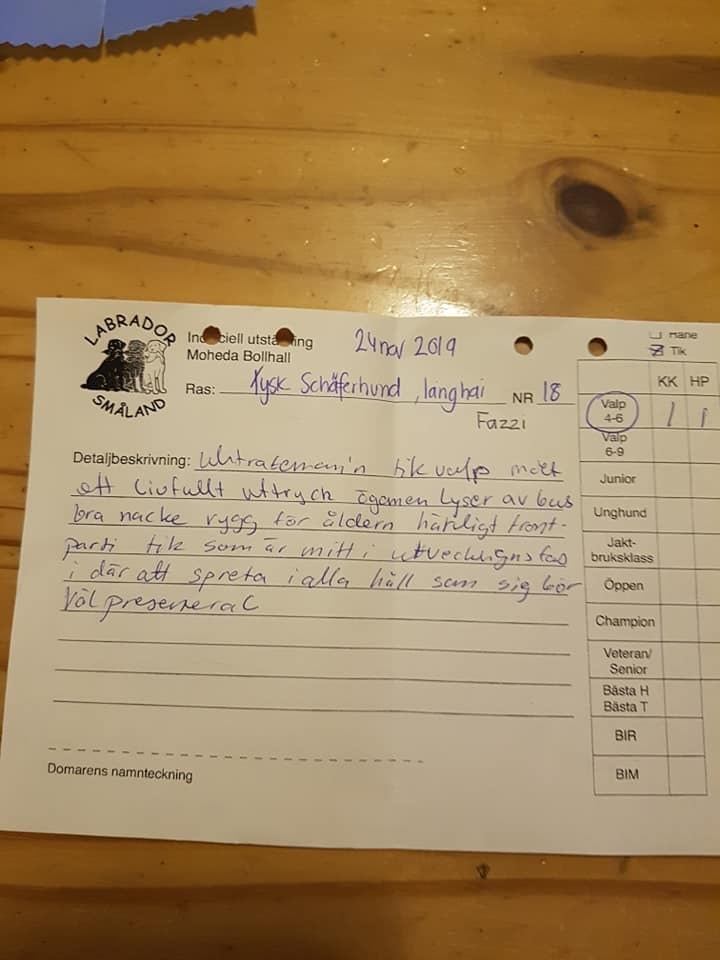 LABRADOR
SMÅLAND
Inofficiell utställning
Moheda Bollhall
24 nov 2019
Hane
Tik
Ras: Tysk Schäferhund, långhai NR 18
Fazzi
KK HP
Valp
4-6
1 1
Valp
6-9
Junior
Unghund
Jakt-
bruksklass
Öppen
Champion
Veteran/
Senior
Bästa H
Bästa T
BIR
BIM
Detaljbeskrivning: tik valp
ett livfullt uttryck ögonen lyser av bus
bra nacke rygg för åldern härligt front-
parti tik som är mitt i utvecklignsfas
i där att spreta i alla håll som sig bör
Väl presenterad
Domarens namnteckning